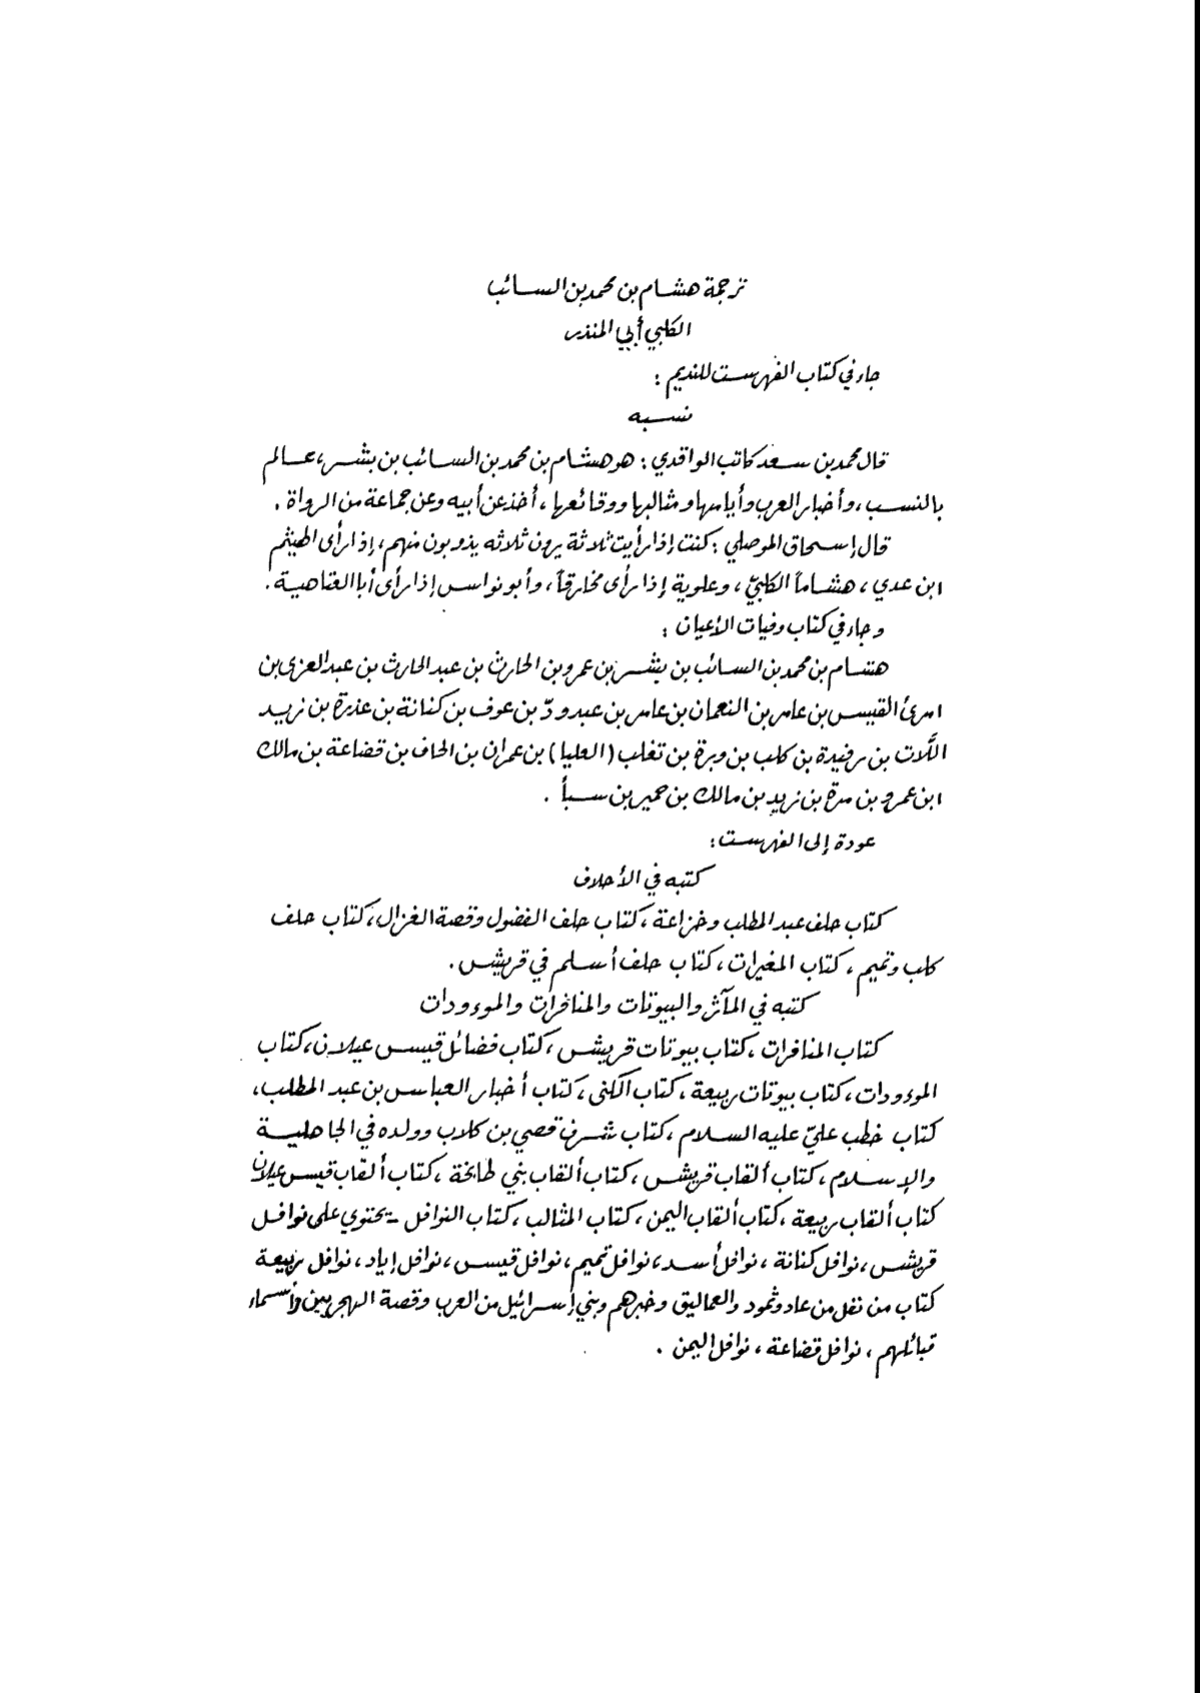 ترجمة هشام بن محمد بن السائب
الكلبي أبي المنذر
جاء في كتاب الفهرست للنديم :
نسبه
قال محمد بن سعد كاتب الواقدي : هو هشام بن محمد بن السائب بن بشر، عالم
بالنسب ، وأخبار العرب وأيامها ومثالبها ووقائعها ، أخذ عن أبيه وعن جماعة من الرواة .
قال إسحاق الموصلي : كنت إذا رأيت ثلاثة يرون ثلاثه يذوبون منهم ، إذا رأى الهيثم
ابن عدي ، هشاماً الكلبيّ ، وعلوية إذا رأى مخارقاً ، وأبو نواس إذا رأى أبا العتاهية .
وجاء في كتاب وفيات الأعيان :
هشام بن محمد بن السائب بن بشر بن عمرو بن الحارث بن عبد الحارث بن عبد العزى بن
امرئ القيس بن عامر بن النعمان بن عامر بن عبد ودّ بن عوف بن كنانة بن عذرة بن زيد
اللّات بن رفيدة بن كلب بن وبرة بن تغلب ( العليا ) بن عمران بن الحاف بن قضاعة بن مالك
ابن عمرو بن مرة بن زيد بن مالك بن حمير بن سبأ .
عودة إلى الفهرست :
كتبه في الأحلاف
كتاب حلف عبد المطلب وخزاعة ، كتاب حلف الفضول وقصة الغزال ، كتاب حلف
كلب وتميم ، كتاب المغيرات ، كتاب حلف أسلم في قريش .
كتبه في المآثر والبيوتات والمنافرات والموءودات
كتاب المنافرات ، كتاب بيوتات قريش ، كتاب فضائل قيس عيلان ، كتاب
الموءودات ، كتاب بيوتات ربيعة ، كتاب الكنى ، كتاب أخبار العباس بن عبد المطلب ،
كتاب خطب عليّ عليه السلام ، كتاب شرف قصي بن كلاب وولده في الجاهلية
والإسلام ، كتاب ألقاب قريش ، كتاب ألقاب بني طابخة ، كتاب ألقاب قيس عيلان
كتاب ألقاب ربيعة ، كتاب ألقاب اليمن ، كتاب المثالب ، كتاب النوافل - يحتوي على نوافل
قريش ، نوافل كنانة ، نوافل أسد ، نوافل تميم ، نوافل قيس ، نوافل إياد ، نوافل ربيعة
كتاب من نقل من عاد وثمود والعماليق وخبرهم وبني إسرائيل من العرب وقصة الهجريين وأسماء
قبائلهم ، نوافل قضاعة ، نوافل اليمن .